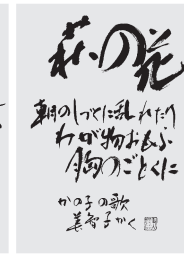 萩の花
朝のしづくに乱れたり
わが物おもふ
胸のごとくに
かの子の歌
美智子かく